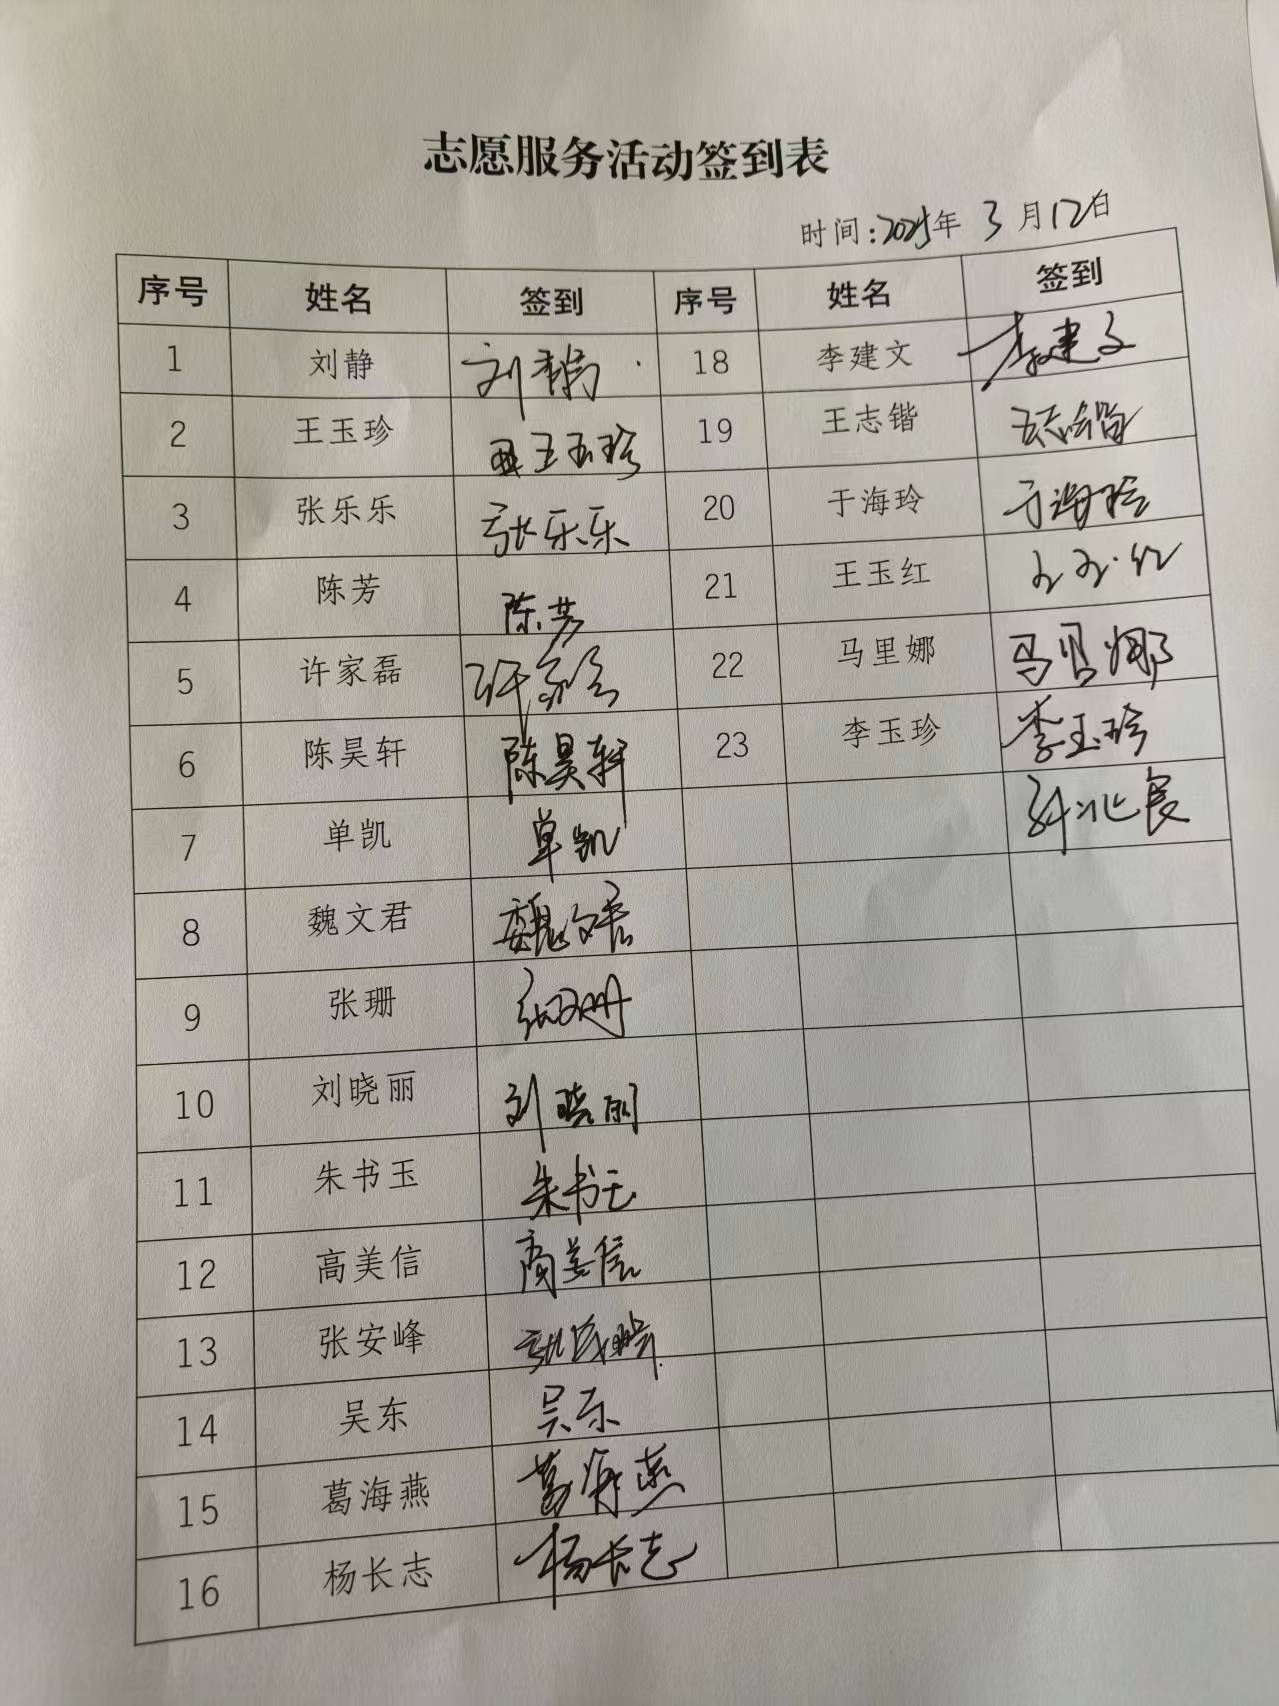 志愿服务活动签到表
时间:2025年 3 月12日
序号 姓名 签到 序号 姓名 签到
1 刘静 刘静 18 李建文 李建文
2 王玉珍 王玉珍 19 王志锴 王志锴
3 张乐乐 张乐乐 20 于海玲 于海玲
4 陈芳 陈芳 21 王玉红 王玉红
5 许家磊 许家磊 22 马里娜 马里娜
6 陈昊轩 陈昊轩 23 李玉珍 李玉珍
7 单凯 单凯
8 魏文君 魏文君
9 张珊 张珊
10 刘晓丽 刘晓丽
11 朱书玉 朱书玉
12 高美信 高美信
13 张安峰 张安峰
14 吴东 吴东
15 葛海燕 葛海燕
16 杨长志 杨长志